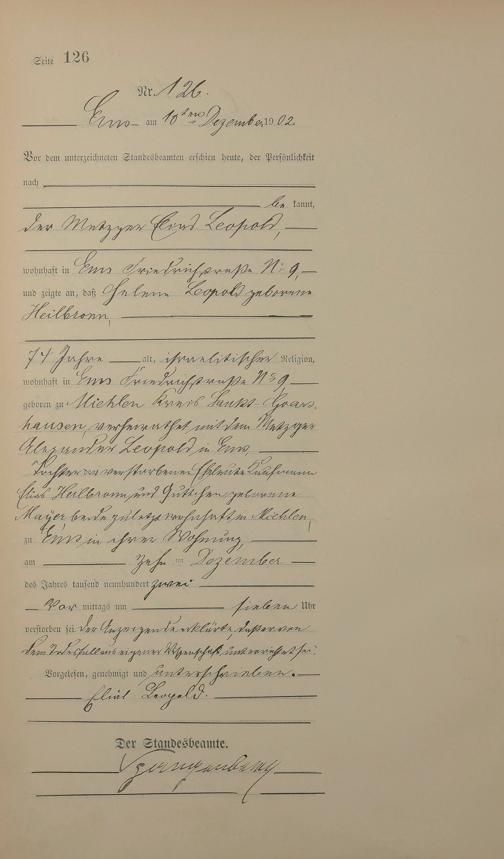 Seite 126
Nr. 126.
Ems am 10ten Dezember 1902.
Vor dem unterzeichneten Standesbeamten erschien heute, der Persönlichkeit
nach
be kannt,
der Metzger Elias Leopold,
wohnhaft in Ems Friedrichstraße No 9,
und zeigte an, daß Helene Leopold geborene
Heilbronn,
74 Jahre alt, israelitischer Religion,
wohnhaft in Ems Friedrichstraße No 9
geboren zu Miehlen Kreis Sankt-Goars-
hausen, verheirathet mit dem Metzger
Alexander Leopold in Ems,
Tochter der verstorbenen Eheleute Kaufmann
Elias Heilbronn und Gütchen geborene
Mayer beide zuletzt wohnhaft in Miehlen,
zu Ems in ihrer Wohnung,
am zehn ten Dezember
des Jahres tausend neunhundert zwei
Vor mittags um sieben Uhr
verstorben sei. Der Anzeigende erklärte, daß er von
dem Todesfall aus eigener Wissenschaft unterrichtet sei.
Vorgelesen, genehmigt und unterschrieben.
Elias Leopold.
Der Standesbeamte.
Spangenberg